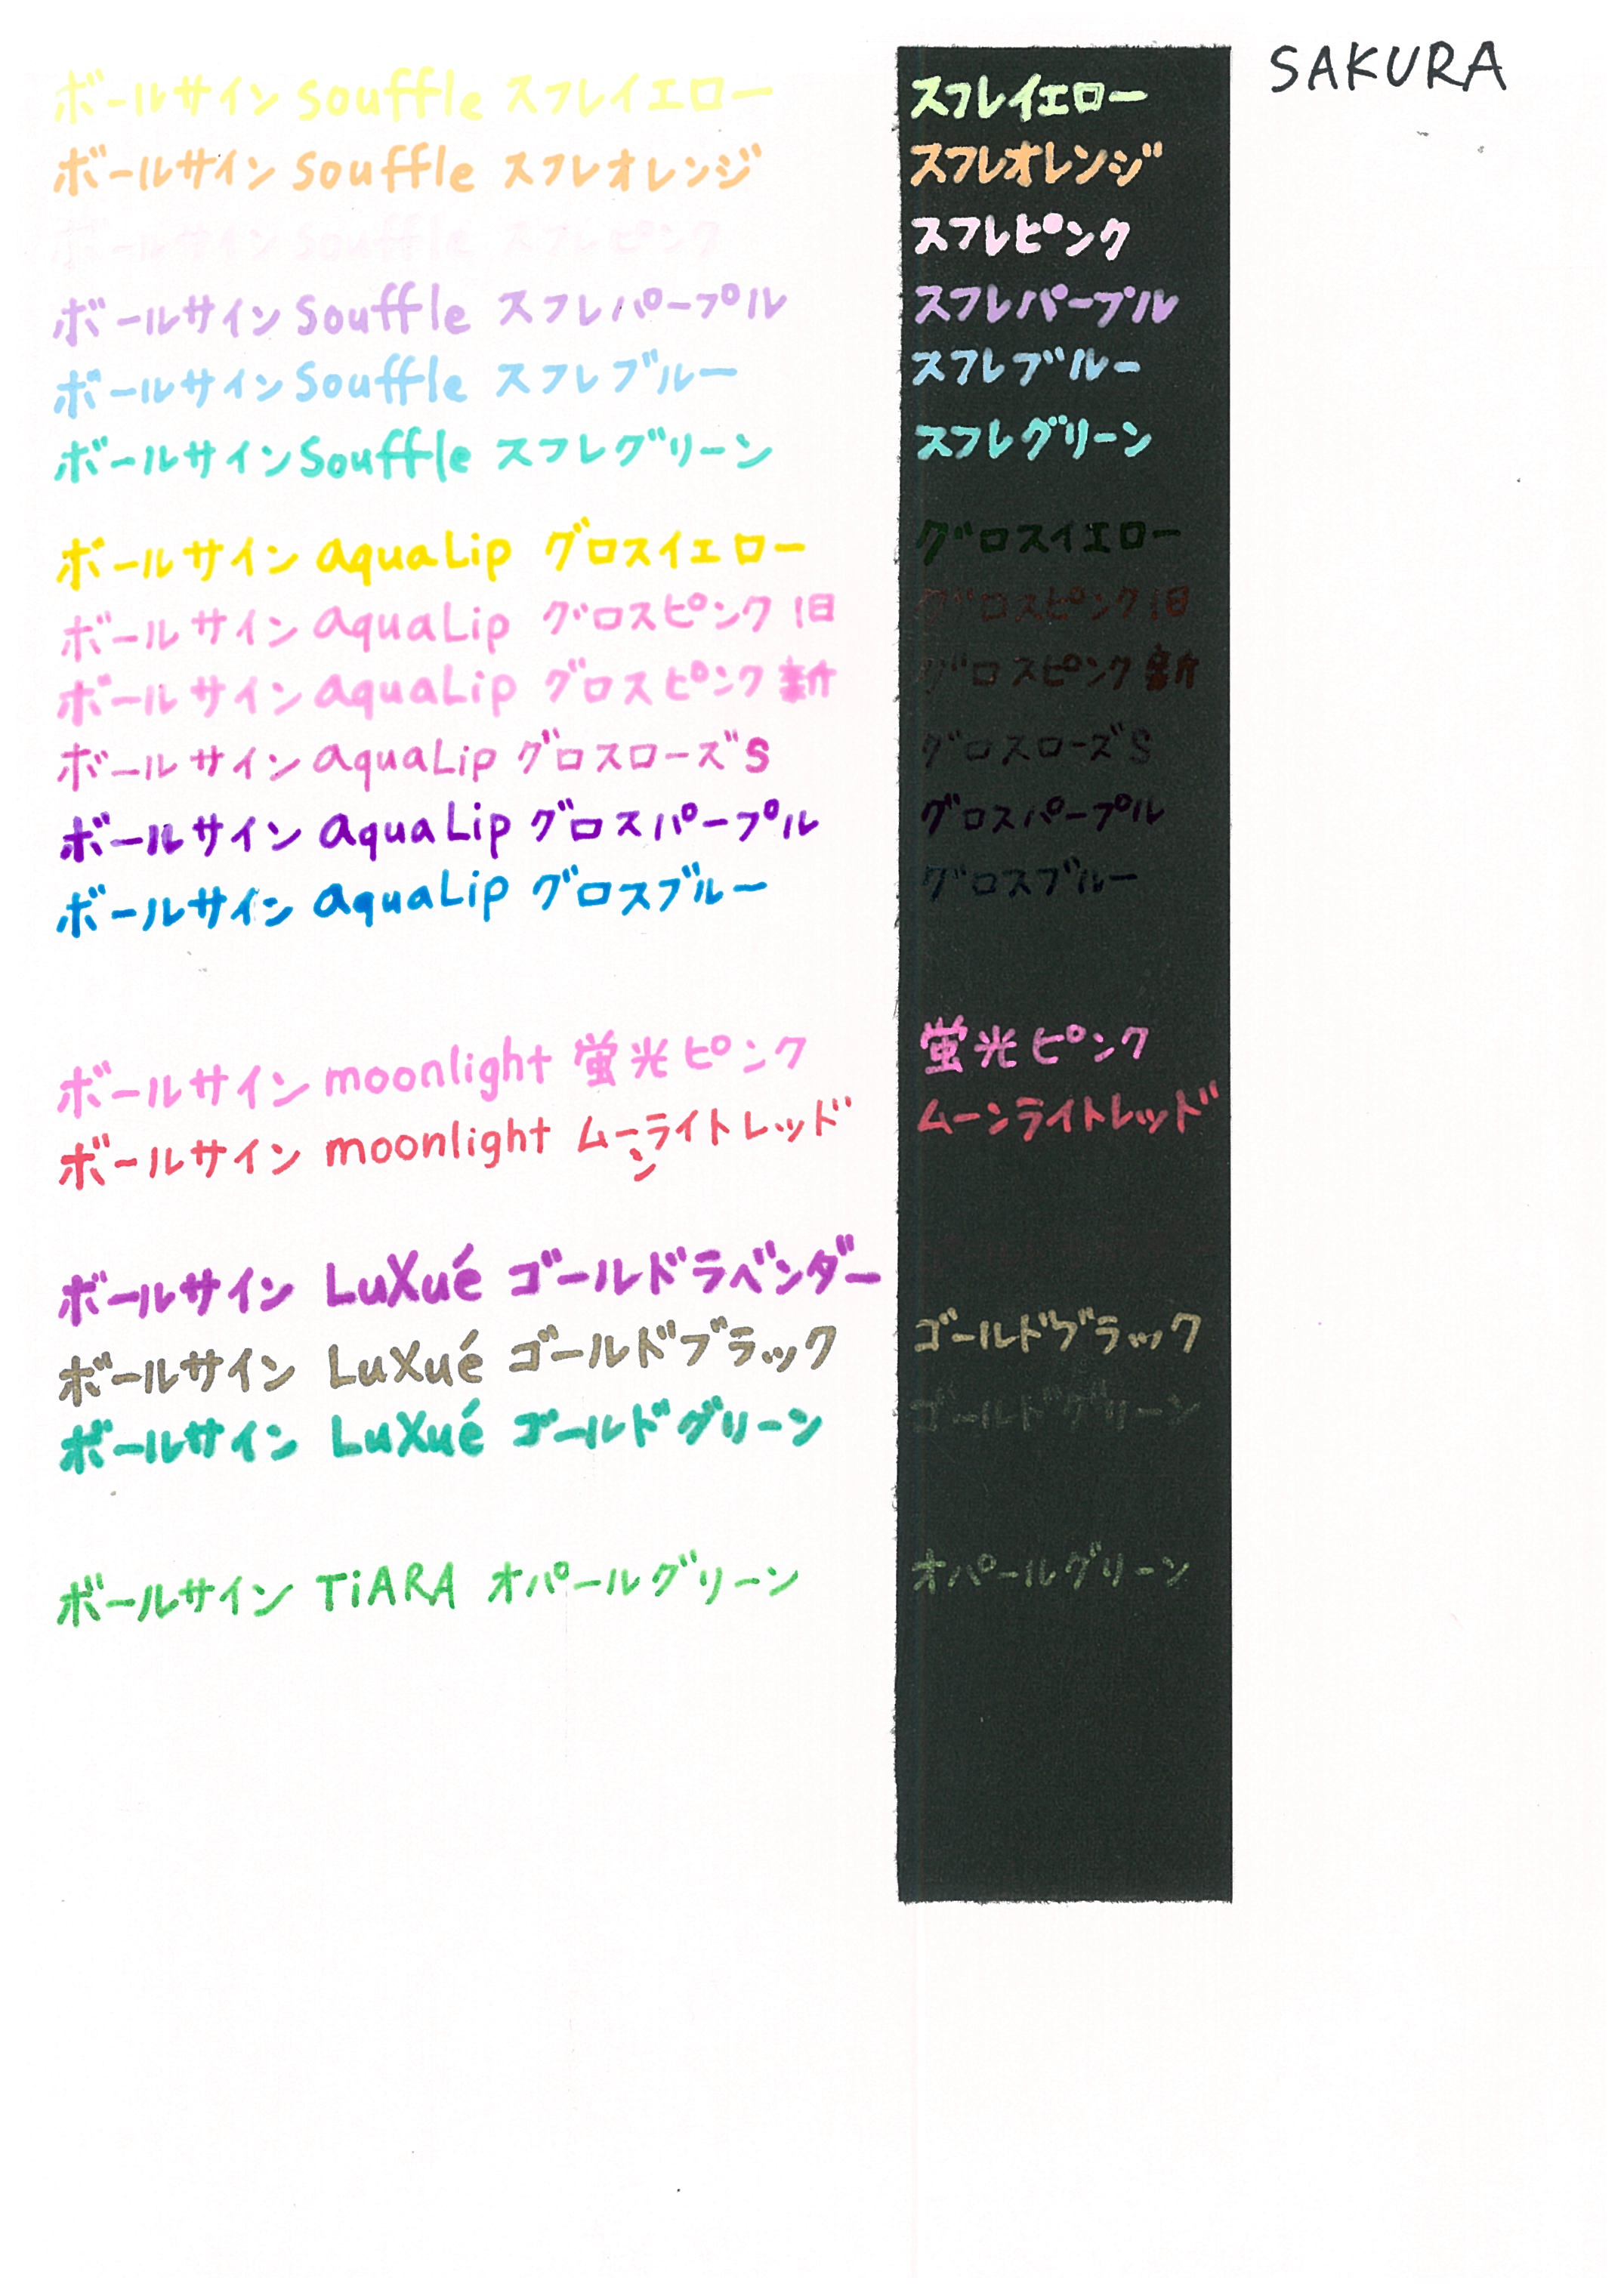 SAKURA
ボールサイン souffle スフレイエロー スフレイエロー
ボールサイン souffle スフレオレンジ スフレオレンジ
ボールサイン souffle スフレピンク スフレピンク
ボールサイン souffle スフレパープル スフレパープル
ボールサイン souffle スフレブルー スフレブルー
ボールサイン souffle スフレグリーン スフレグリーン
ボールサイン aquaLip グロスイエロー グロスイエロー
ボールサイン aquaLip グロスピンク 旧 グロスピンク 旧
ボールサイン aquaLip グロスピンク 新 グロスピンク 新
ボールサイン aquaLip グロスローズS グロスローズS
ボールサイン aquaLip グロスパープル グロスパープル
ボールサイン aquaLip グロスブルー グロスブルー
ボールサイン moonlight 蛍光ピンク 蛍光ピンク
ボールサイン moonlight ムーンライトレッド ムーンライトレッド
ボールサイン LuXué ゴールドラベンダー
ボールサイン LuXué ゴールドブラック ゴールドブラック
ボールサイン LuXué ゴールドグリーン ゴールドグリーン
ボールサイン TiARA オパールグリーン オパールグリーン